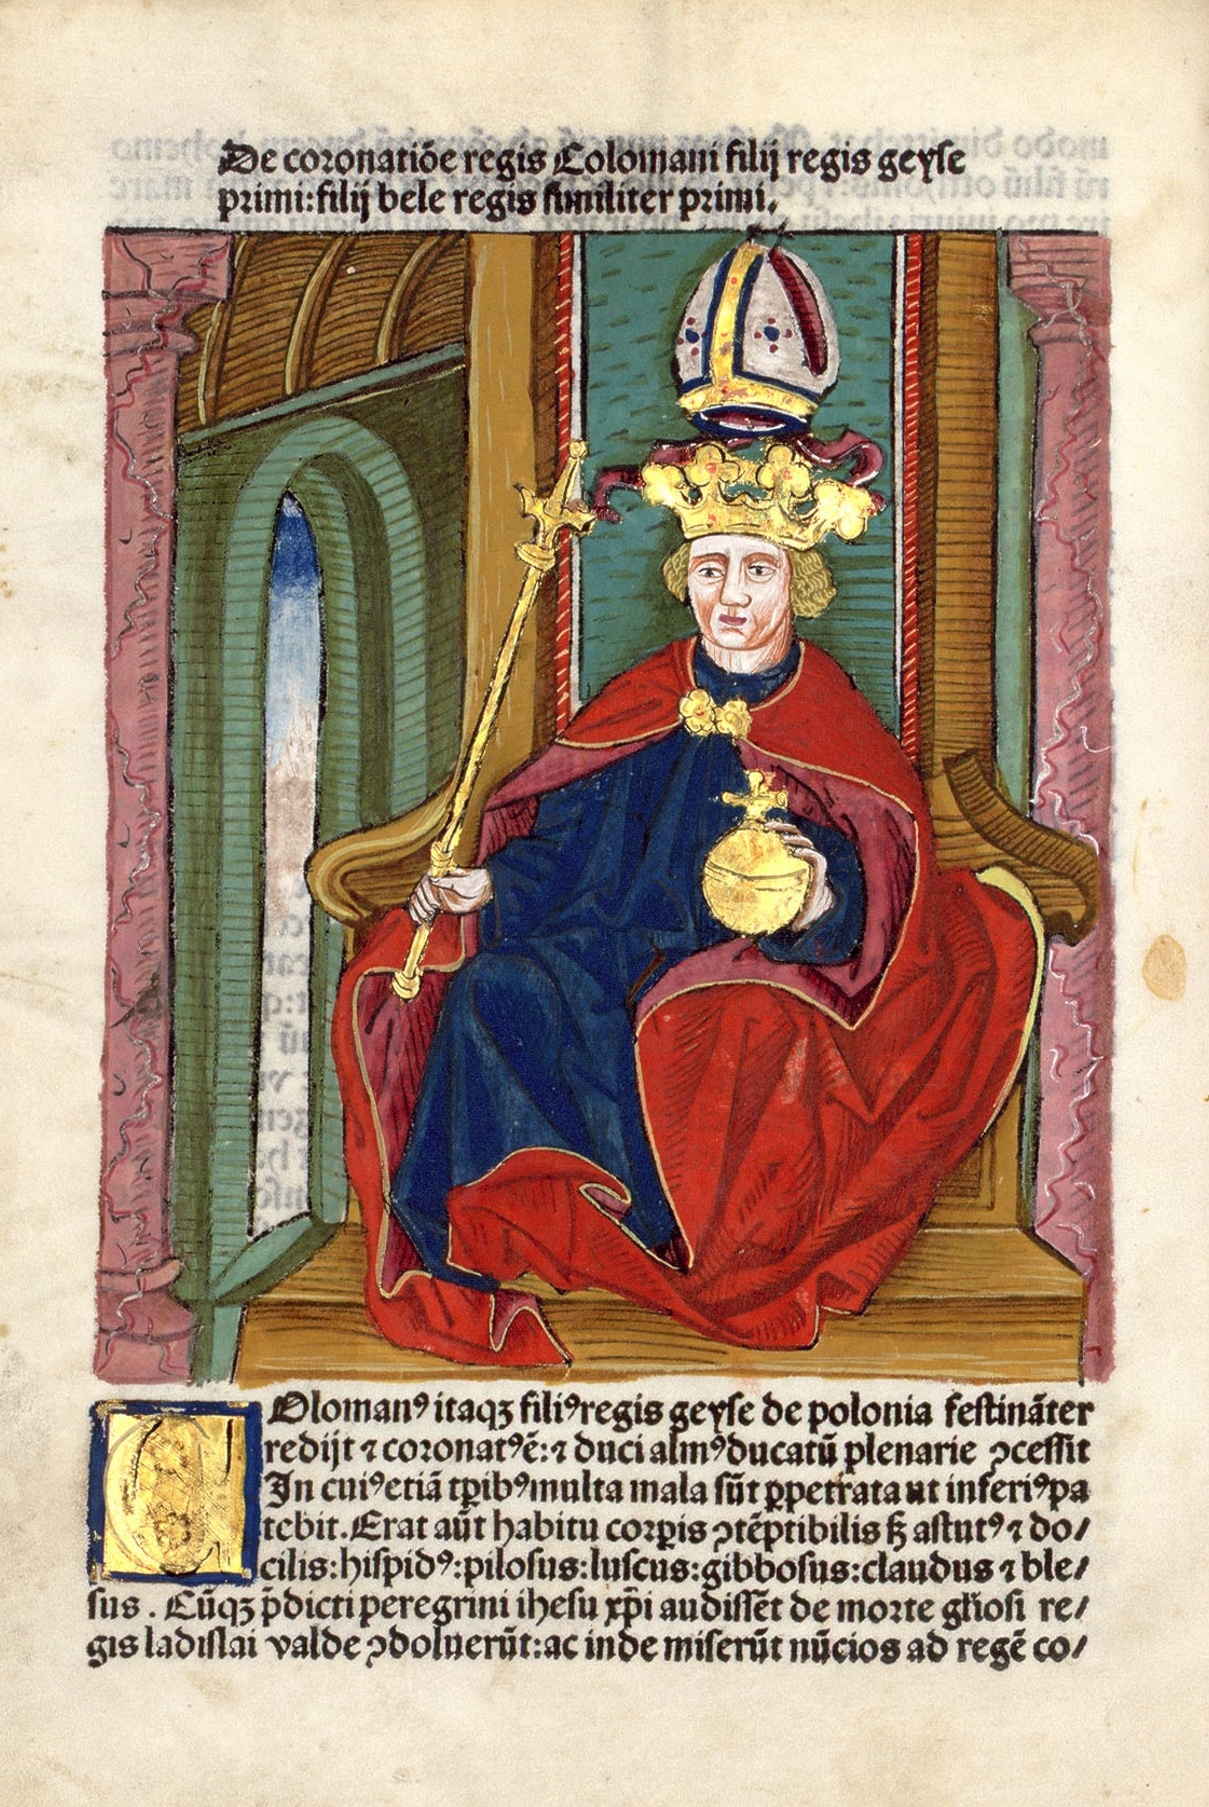 De coronatiōe regis Colomani filij regis geyse
primi:filij bele regis similiter primi.
Olomanꝰ itaqꝫ filiꝰ regis geyse de polonia festinãter
redijt ⁊ coronatꝰ ē:⁊ duci almꝰ ducatū plenarie ꝯcessit
In cuiꝰ etiã tꝑibꝰ multa mala sūt ꝑpetrata ut inferiꝰ pa
tebit. Erat aūt habitu corꝑis ꝯtēptibilis sꝫ astutꝰ ⁊ do/
cilis:hispidꝰ:pilosus:luscus:gibbosus:claudus ⁊ ble/
sus. Cūqꝫ p̄dicti peregrini ihesu xp̄i audissēt de morte gl̄iosi re/
gis ladislai valde ꝯdoluerūt:ac inde miserūt nūcios ad regē co/